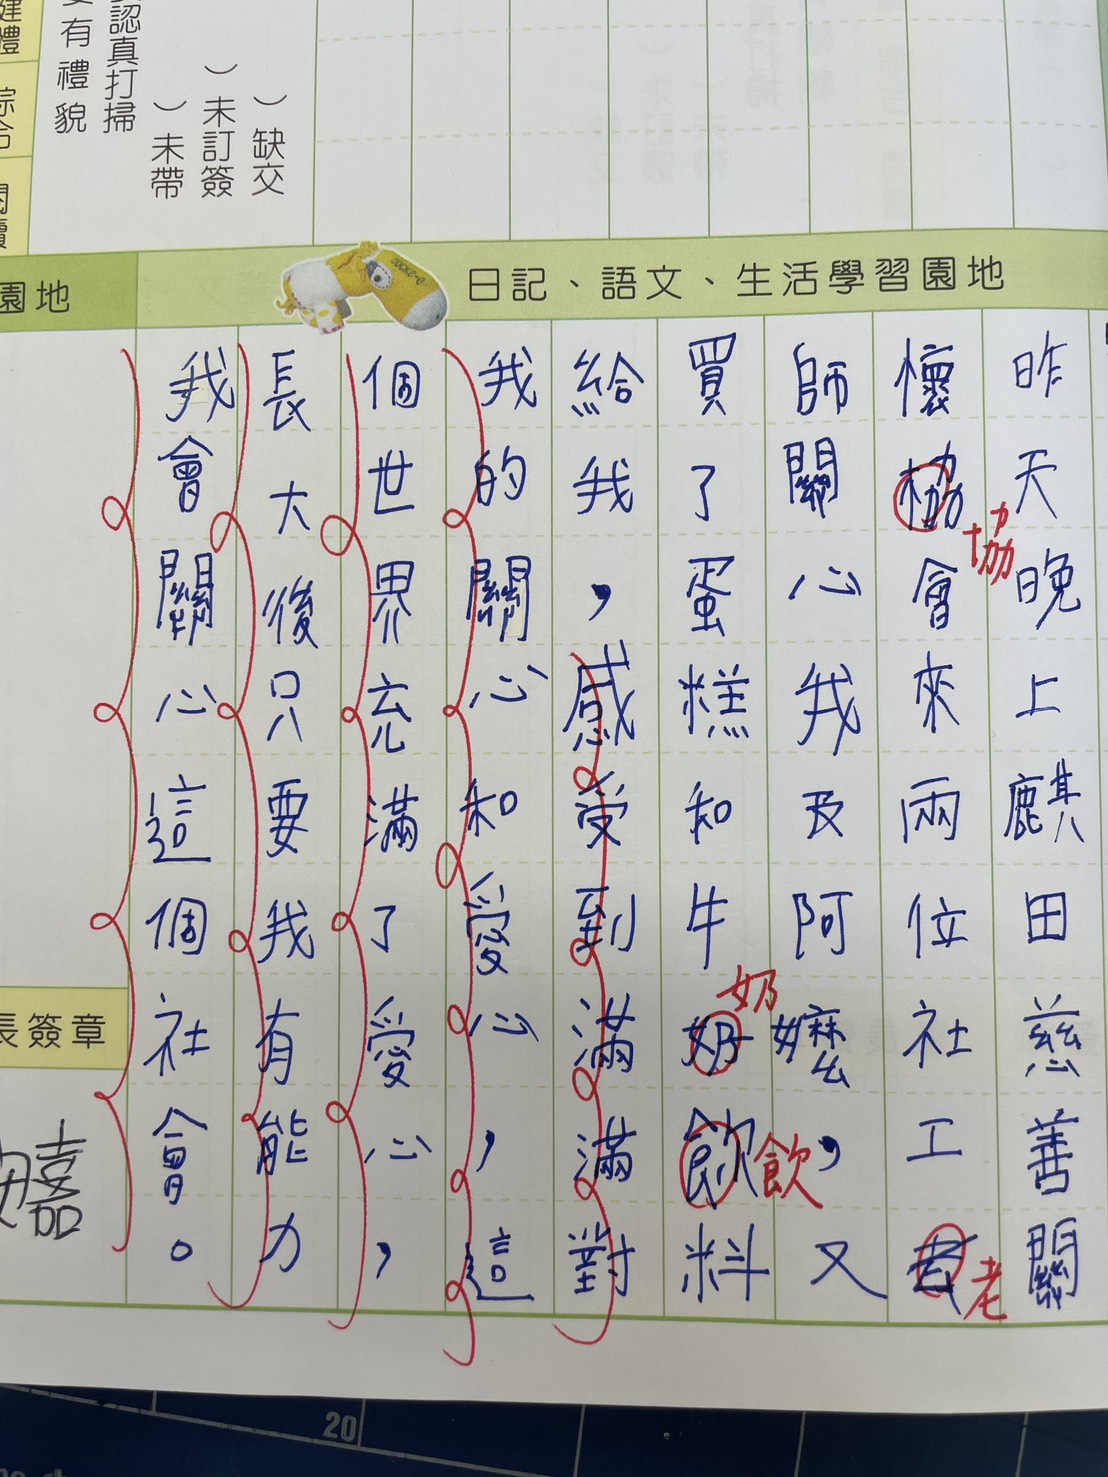 認真打掃
有禮貌
）缺交
）未訂簽
）未帶
綜合
日記、語文、生活學習園地
昨天晚上麒田慈善關
懷協會來兩位社工老
協
老
師關心我及阿嬤，又
買了蛋糕和牛奶飲料
奶
飲
給我，感受到滿滿對
我的關心和愛心，這
個世界充滿了愛心，
長大後只要我有能力
我會關心這個社會。
園地
長簽章
嘉
20